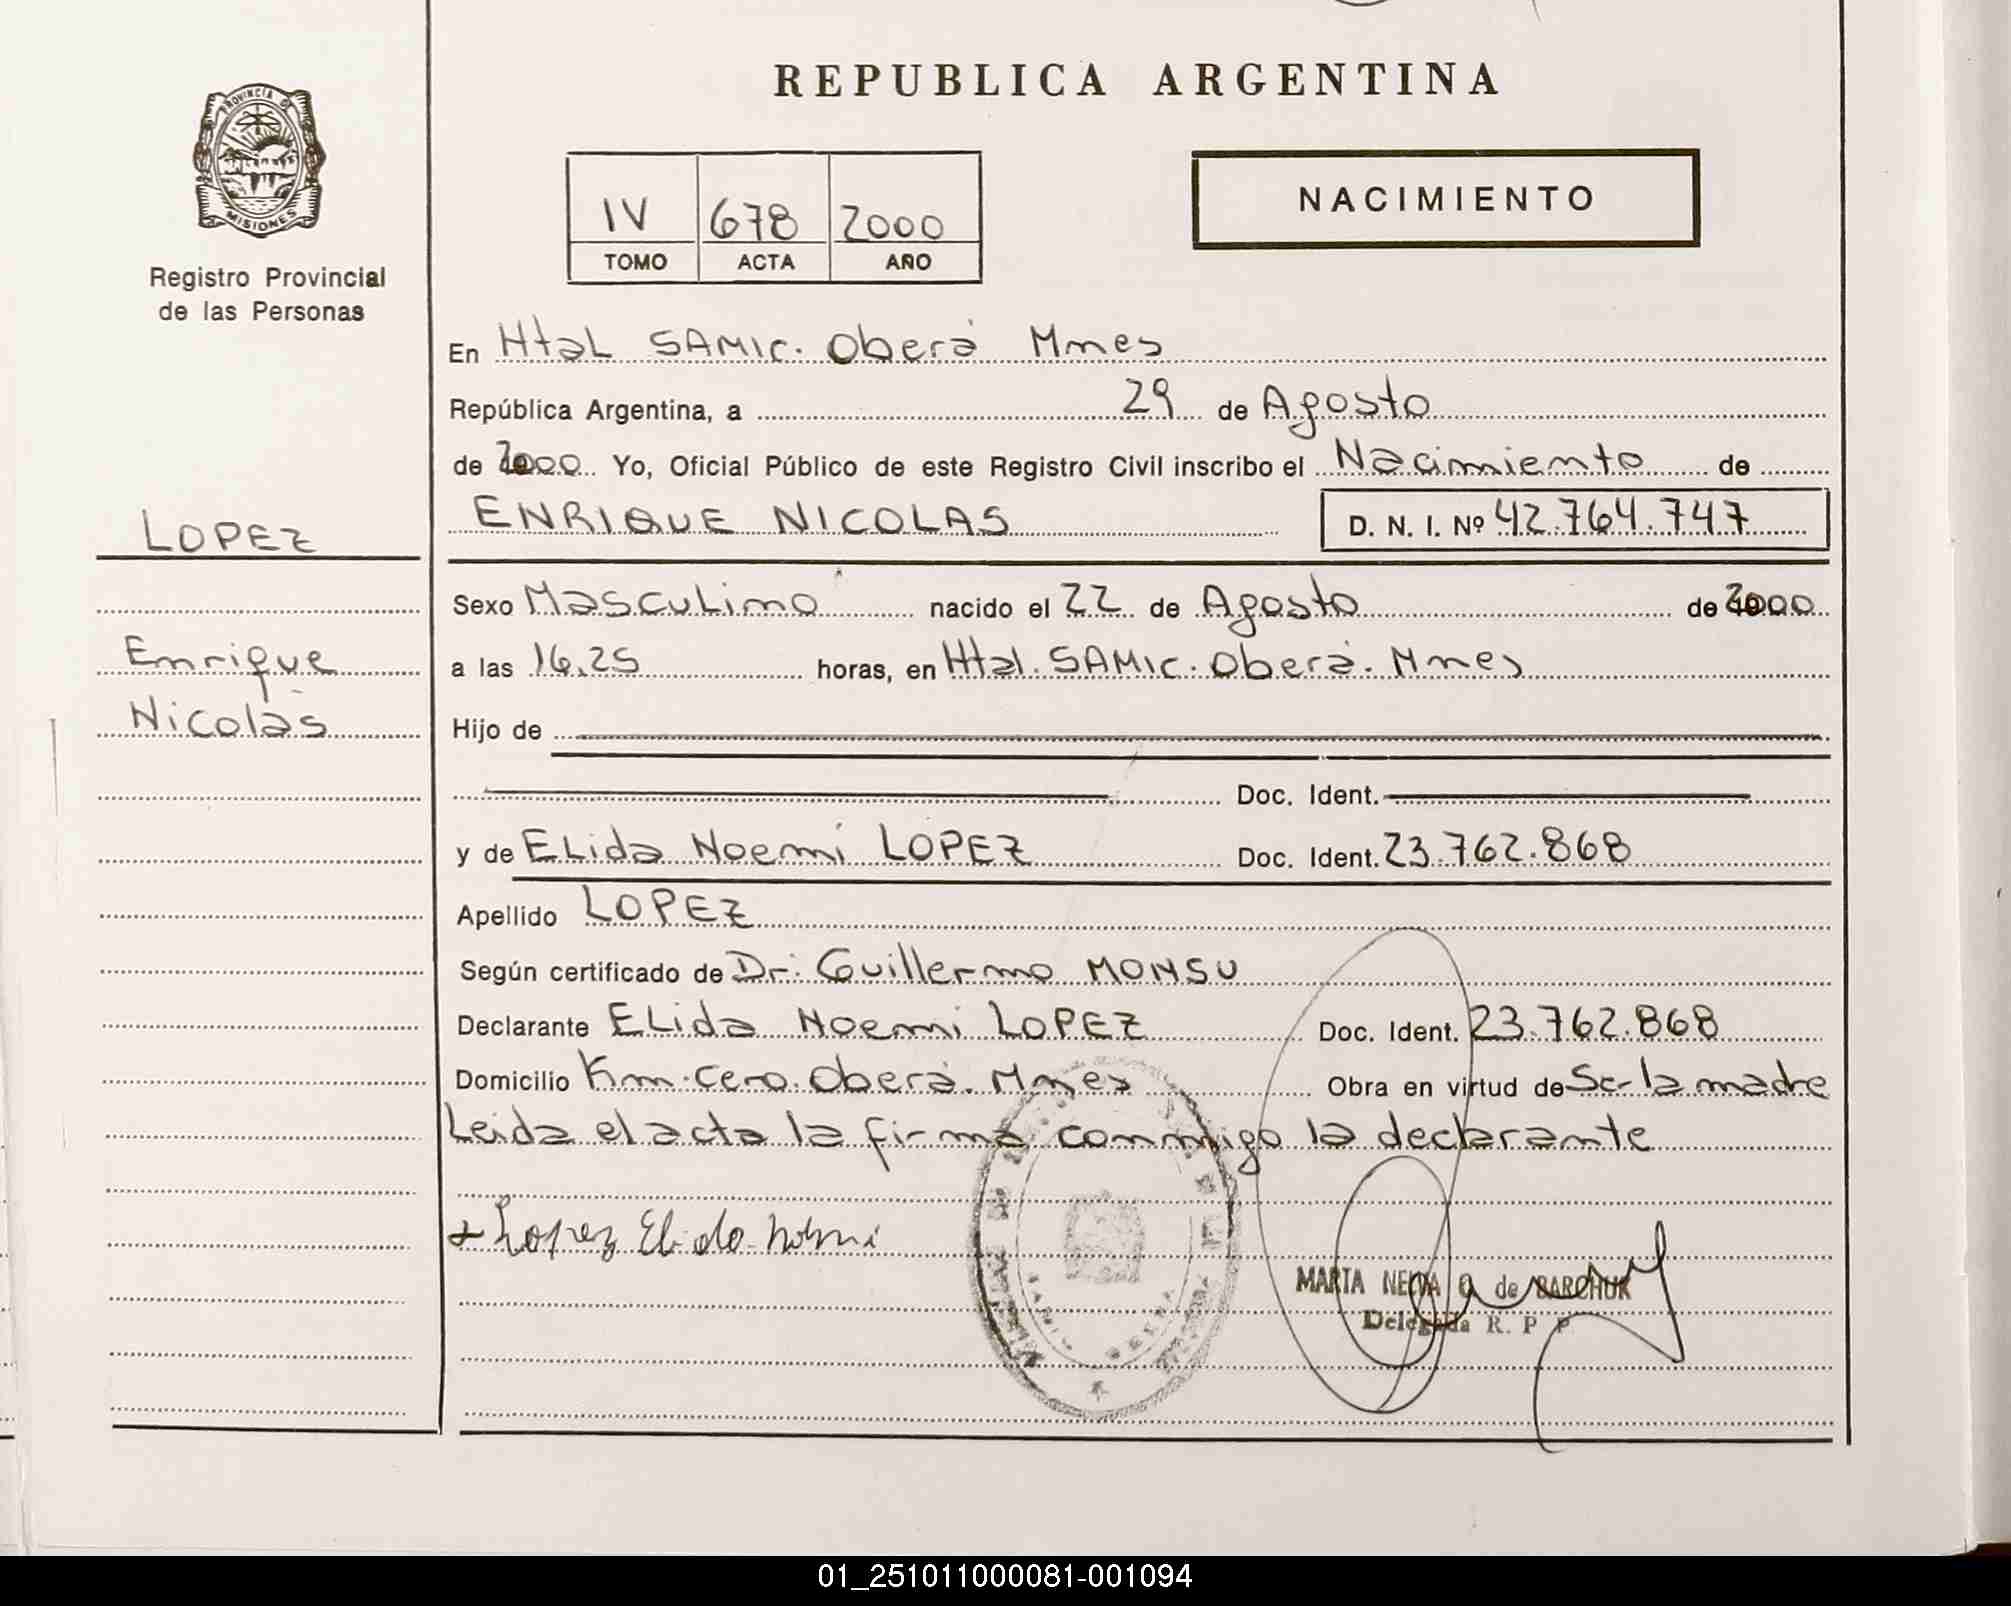 REPUBLICA ARGENTINA
PROVINCIA DE
MISIONES
Registro Provincial
de las Personas
IV 678 2000
TOMO ACTA AÑO
NACIMIENTO
En Htal SAMIC. Oberá Mnes
República Argentina, a 29 de Agosto
de 2000 Yo, Oficial Público de este Registro Civil inscribo el Nacimiento de
ENRIQUE NICOLAS D. N. I. Nº 42.764.747
LOPEZ
Sexo Masculino nacido el 22 de Agosto de 2000
Enrique
a las 16,25 horas, en Htal. SAMIC. Oberá. Mnes
Nicolás
Hijo de
Doc. Ident.
y de ELida Noemí LOPEZ Doc. Ident. 23.762.868
Apellido LOPEZ
Según certificado de Dr. Guillermo MONSU
Declarante ELida Noemi LOPEZ Doc. Ident. 23.762.868
Domicilio Km. Cero. Oberá. Mnes Obra en virtud de Sr- la madre
Leida el acta la firma conmigo la declarante
+ Lopez Elida Nohemi
MARTA NELDA O de BARCHUK
Delegada R. P. P.
01_251011000081-001094